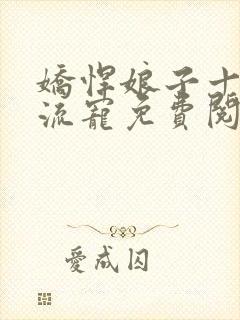 嬌悍娘子十
流寵免費閱
愛成囚